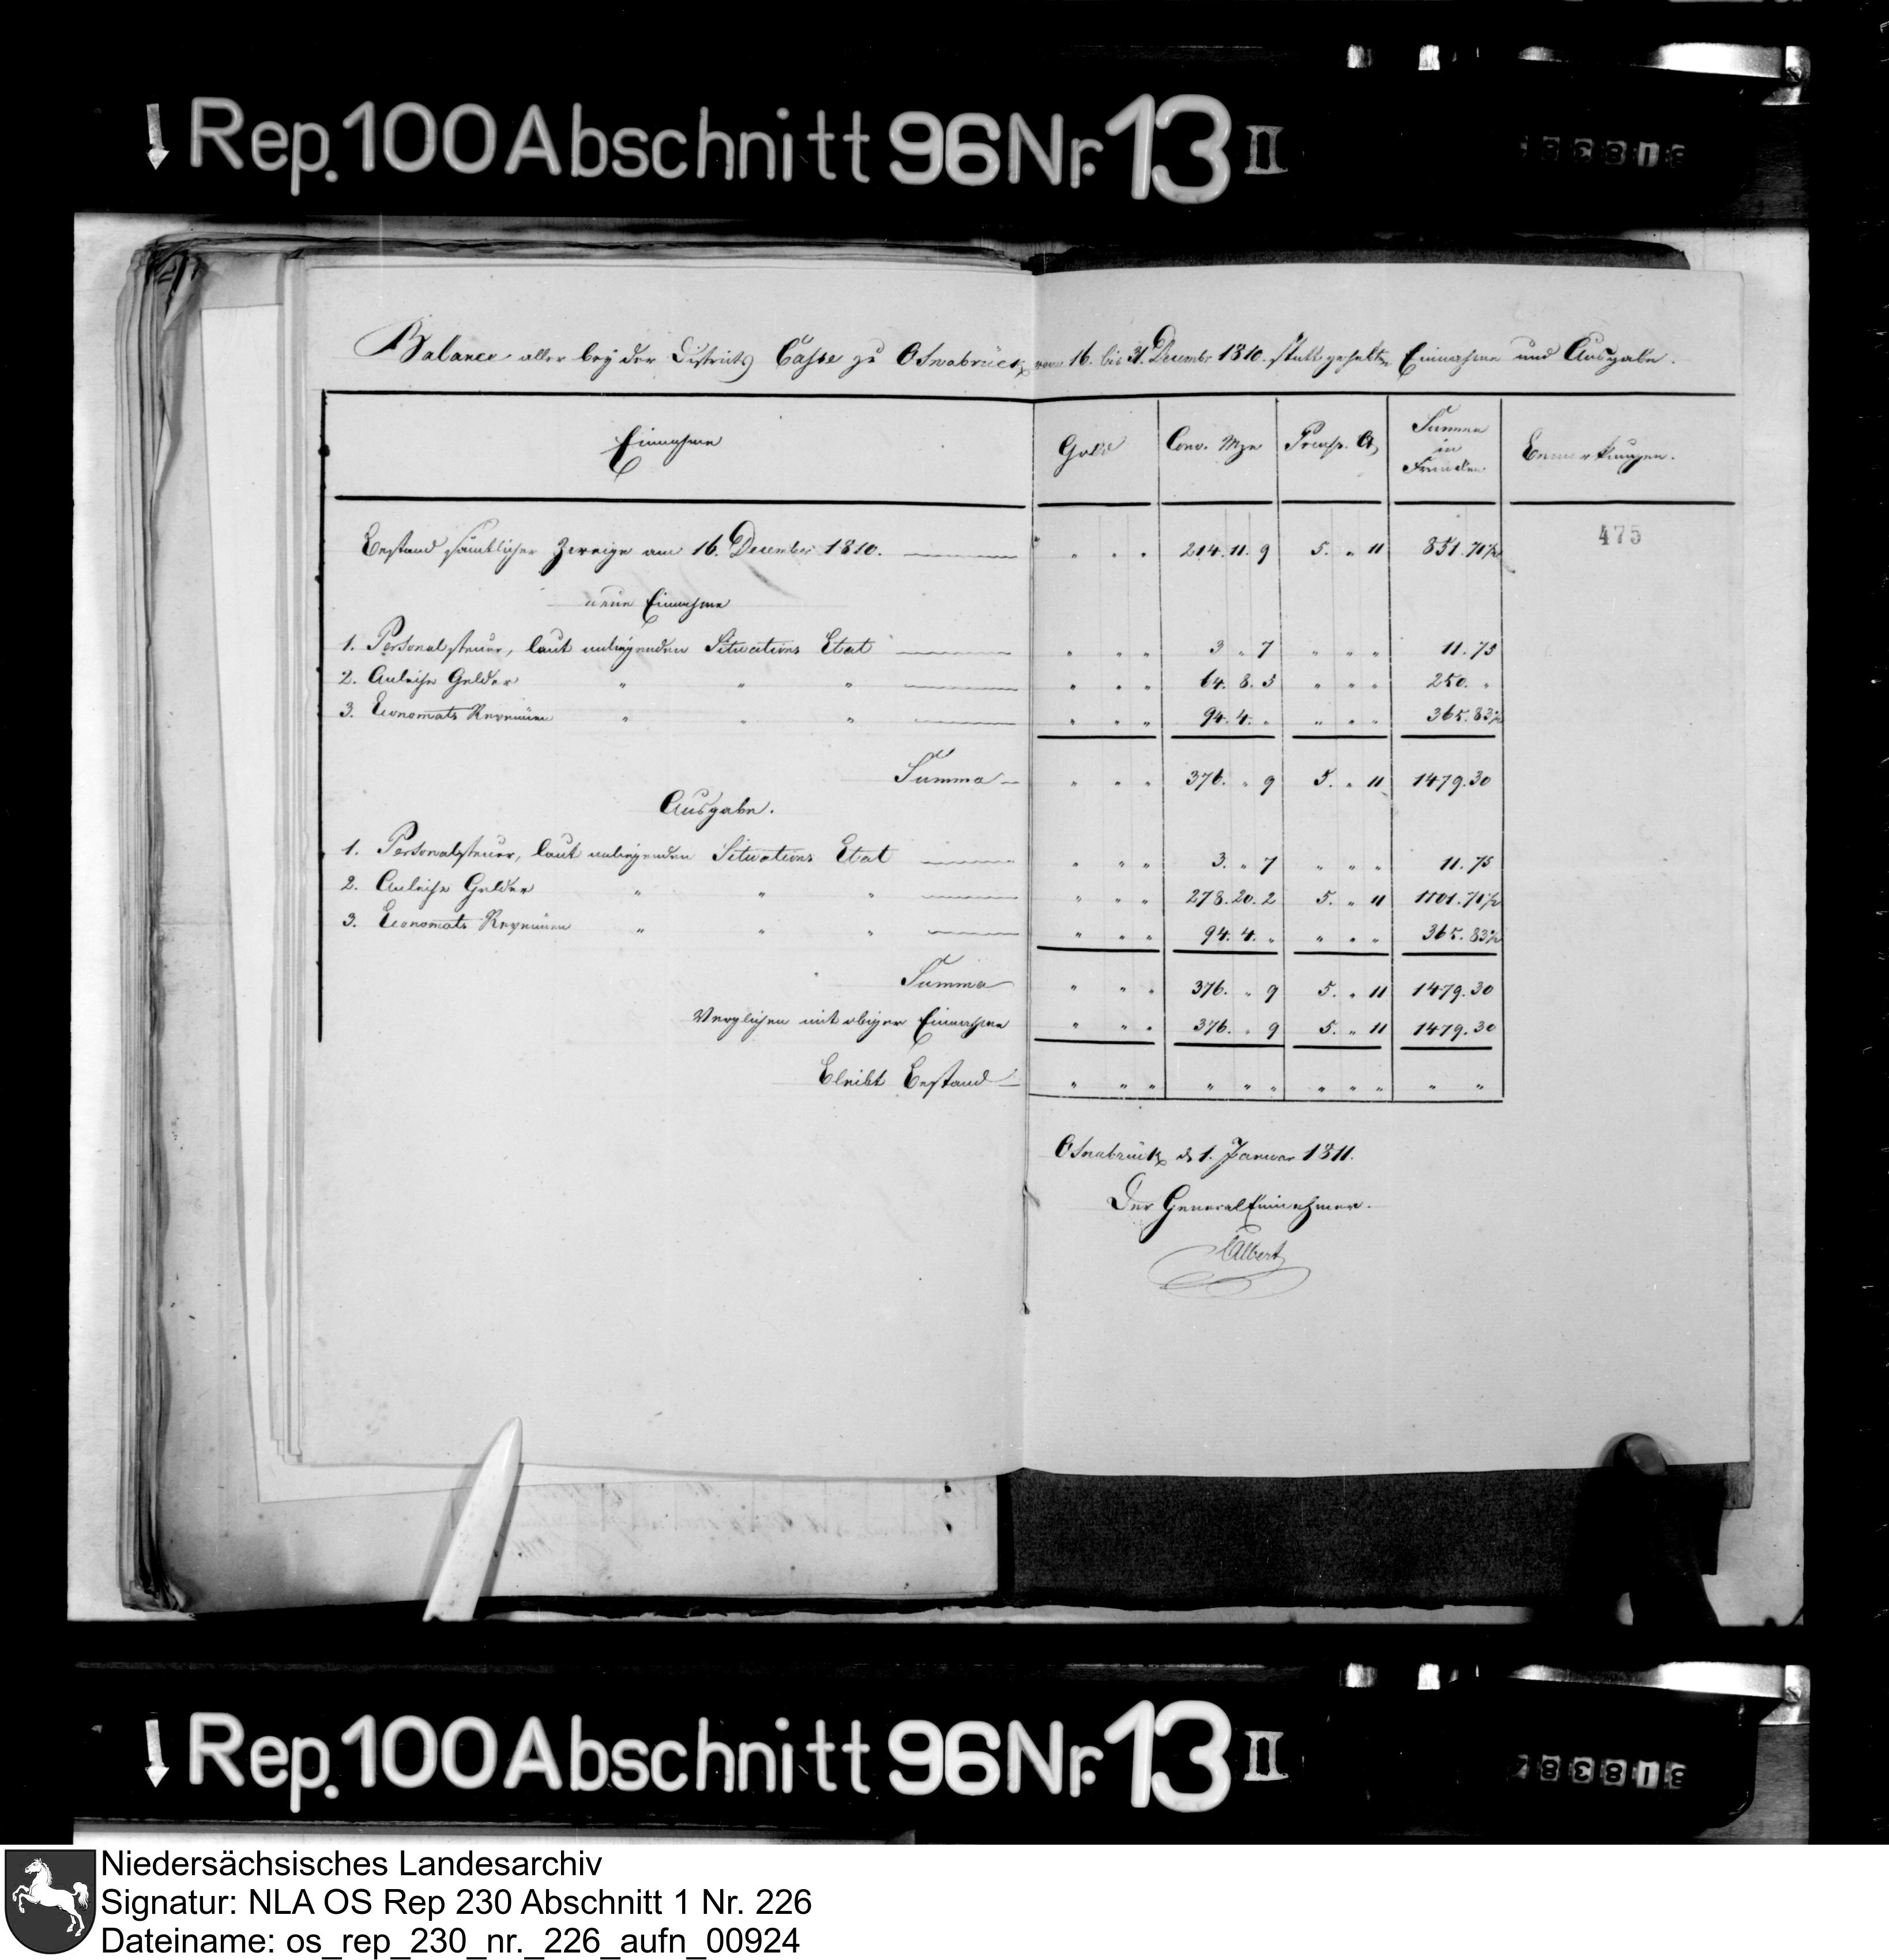 Rep. 100 Abschnitt 96 Nr. 13 II
Balance aller bey der Districts Casse zu Osnabrück vom 16. bis 31. December 1810. statt gehabten Einnahme und Ausgabe.
Einnahme Gold Conv. Mze Preuss. Ct. Summa in Franken Bemerkungen.
475
Bestand sämtlicher Zweige am 16. December 1810. " " " 214. 11. 9 5. " 11 851. 71½
neue Einnahme
1. Personalsteuer, laut anliegenden Situations Etat " " " 3 " 7 " " " 11. 75
2. Anleihe Gelder " " " " " " 64. 8. 5 " " " 250. "
3. Economats Revenüen " " " " " " 94. 4. " " " " 365. 83½
Summa " " " 376. " 9 5. " 11 1479. 30
Ausgabe.
1. Personalsteuer, laut anliegenden Situations Etat " " " 3. " 7 " " " 11. 75
2. Anleihe Gelder " " " " " " 278. 20. 2 5. " 11 1101. 71½
3. Economats Revenüen " " " " " " 94. 4. " " " " 365. 83½
Summa " " " 376. " 9 5. " 11 1479. 30
Verglichen mit obiger Einnahme " " " 376. " 9 5. " 11 1479. 30
Bleibt Bestand " " " " " " " " " " "
Osnabrück d. 1. Januar 1811.
Der General Einnehmer.
Albert
Rep. 100 Abschnitt 96 Nr. 13 II
Niedersächsisches Landesarchiv
Signatur: NLA OS Rep 230 Abschnitt 1 Nr. 226
Dateiname: os_rep_230_nr._226_aufn_00924